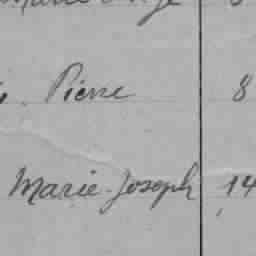 Pierre 8
Marie-Joseph 14